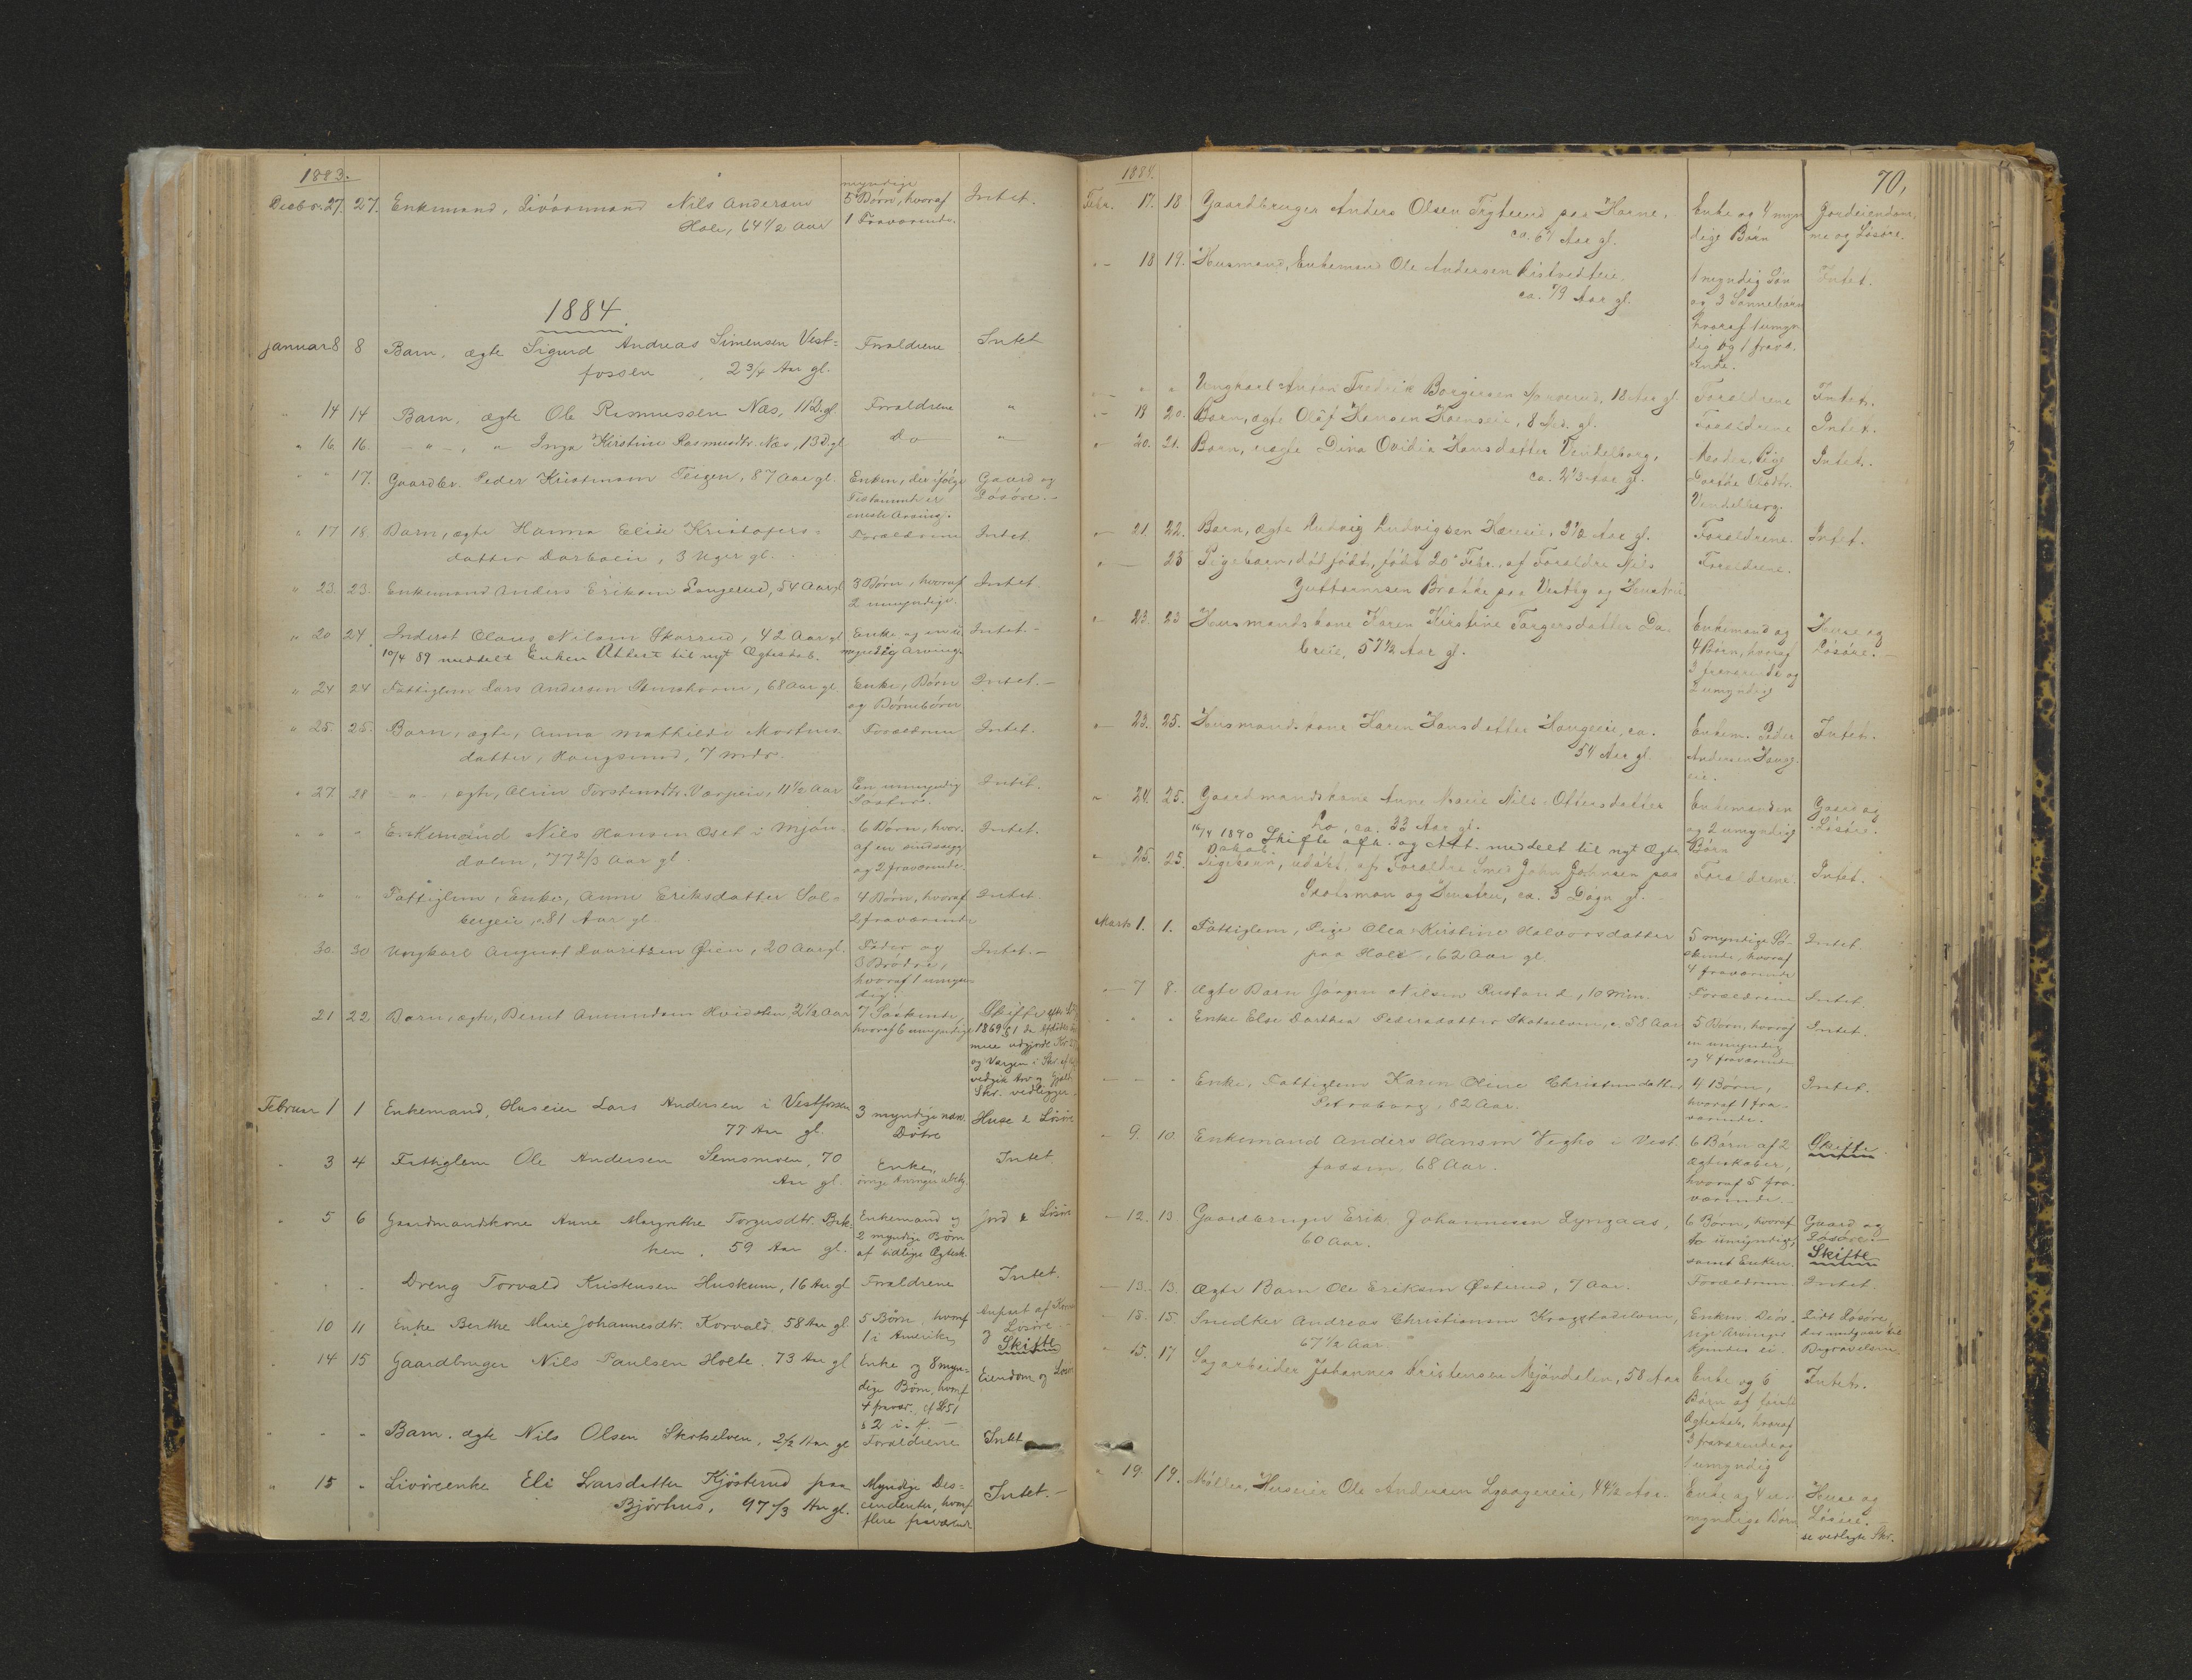 1883.
Decbr. 27. 27. Enkemand, Livöresmand Nils Andersen myndige 5 Børn, hvoraf Intet.
Hole, 64 1/2 Aar 1 Fraværende.
1884.
Januar 8 8 Barn, ægte Sigurd Andreas Simensen Vest= Forældrene Intet
fossen, 2 3/4 Aar gl.
" 14 14 Barn, ægte Ole Rasmussen Næs, 11 D. gl. Forældrene "
" 16 16. - " - , " Inga Kirstine Rasmusdtr. Næs, 13 D. gl do "
" " 17. Gaardbr. Peder Kristensen Teigen, 87 Aar gl. Enken, der ifølge Gaard og
Testament er Løsøre.-
eneste Arving.
" 17 18. Barn, ægte Hanna Elise Kristofers= Forældrene Intet.
datter Darbaeie, 3 Uger gl.
" 23. 23. Enkemand Anders Eriksen Langerud, 54 Aar gl 3 Børn, hvoraf Intet.
2 umyndige.
" 20 24. Inderst Olaus Nilsen Skarrud, 42 Aar gl Enke og en u- Intet.-
10/4 89 meddelt Enken Attest til nyt Ægteskab. myndig Arving.
" 24 24 Fattiglem Lars Andersen, 68 Aar gl Enke, Børn Intet.-
og Børnebörn
" 25. 25. Barn, ægte, Anna Mathilde Mortens Forældrene Intet.
datter, Hougsund, 7 Mdr.
" 27. 28 - " - , ægte, Torstensdtr. Værpeie, 11 1/2 Aar En umyndig Intet.
Søster.
" " " Enkemand Nils Hansen Oset i Mjön- 6 Børn, hvor- Intet.
dalen, 77 2/3 Aar gl. af en sindssyg
og 2 fraværende.
" " " Fattiglem, Enke, Anne Eriksdatter Sol= 4 Børn, hvoraf Intet
bergeie, 81 Aar gl. 2 fraværende
30. 30 Ungkarl August Lauritsen Øien, 20 Aar gl. Fader og Intet.-
3 Brødre,
hvoraf 1 umyn-
dig.
21 22 Barn, ægte, Bernt Amundsen Hvidsten, 2 1/2 Aar 7 Søskende, Skifte
hvoraf 6 umyndige 1869
Skr. vedlægger
Februar 1 1 Enkemand, Huseier Lars Andersen i Vestfossen 3 myndige Huse & Løsøre
77 Aar gl. Døtre
" 3 4 Fattiglem Ole Andersen Semsmoen, 70 Enken, Intet
Aar gl. øvrige Arvinger ubekj.
" 5 6 Gaardmandskone Anne Margrethe Torgersdtr. Bak- Enkemand og Jord & Løsøre
ken, 59 Aar gl. 2 myndige Børn
af tidligre Ægtesk.
" " Dreng Torvald Kristensen Huskum, 16 Aar gl Forældrene Intet.
10 11 Enke Berthe Marie Johannesdtr. Korvald, 58 Aar gl 5 Børn, hvoraf
1 i Amerika Løsøre
Skifte
14 15 Gaardbruger Nils Paulsen Holte, 73 Aar gl Enke og 8 myn- Eiendom og Løsøre
dige Børn, hvoraf
4 fravær.
§ 2 i. f. -
" " " Barn, ægte Nils Olsen Skotselven, 2 1/2 Aar gl Forældrene Intet
" 15 " Livøreenke Eli Larsdatter Kjøsterud paa Myndige Des= Intet.-
Bjørhus, 97 1/3 Aar gl. cendenter, hvoraf
flere fraværende
1884. 70.
Febr. 17. 18 Gaardbruger Anders Olsen Tryterud paa Horne, Enke og 4 myn Jordeiendom-
ca. 67 Aar gl. dige Børn me og Løsøre.
" - 18 19. Husmand, Enkemand Ole Andersen Kistvedteie. 1 myndig Søn Intet.
ca. 79 Aar gl. og 3 Sønnebørn
hvoraf 1 umyn
dig og 1 fravæ-
rende.
" - " " Ungkarl Anton Fredrik Borgersen, 18 Aar gl Forældrene Intet.
" - 19 20. Barn, ægte Olaf Hansen, 8 Md. gl. Forældrene Intet.
" 20. 21. Barn, uægte Dina Ovidia Hansdatter Vendelborg, Moder, Pige Intet.
ca. 2 1/3 Aar gl. Dorthe Olsdtr.
Vendelborg.
" 21. 22. Barn, ægte Ludvig Ludvigsen, 3 1/2 Aar gl. Forældrene. Intet.
" 23 Pigebarn, dødfødt, født 20' Febr., af Forældre Nils Forældrene.
Guttormsen Brække paa Vestby og Hustru
" - 23. 23 Husmandskone Karen Kirstine Torgersdatter Da- Enkemand og Huse og
breie, 57 1/2 Aar gl. 4 Børn, hvoraf Løsøre.-
3 fraværende og
2 umyndig
" - 23. 25. Husmandskone Karen Hansdatter Haugeie, ca. Enkem. Peder Intet.
54 Aar gl. Andersen Haug-
eie.
" 24. 25. Gaardmandskone Anne Marie Nils. Ottersdatter Enkemanden Gaard og
Lo, ca. 33 Aar gl. og 2 umyndig Løsøre.
16/4 1890 Skifte afh. og Att. meddelt til nyt Ægte Børn
" 25. 25. Pigebarn, udøbt, af Forældre Smed John Johnsen paa Forældrene. Intet.
og Hustru, ca. 3 Døgn gl.
Marts 1. 1. Fattiglem, Pige Olea Kirstine Halvorsdatter 5 myndige Sø- Intet.
paa Hole, 62 Aar gl. skende, hvoraf
4 fraværende
" 7 8. Ægte Barn Jörgen Nilsen Rustand, 10 Min. Forældrene Intet.
" " " Enke Else Dorthea Pedersdatter Skotselven, c. 58 Aar 5 Børn, hvoraf Intet.
en umyndig
og 4 fraværende
" " " Enke, Fattiglem Karen Oline Christensdatter 4 Børn, Intet.
82 Aar. hvoraf 1 fra-
værende.
" 9. 10. Enkemand Anders Hansen Vegho i Vest- 6 Børn af 2 Skifte
fossen, 68 Aar. Ægteskaber,
hvoraf 5 fra-
værende.
- 12. 13 Gaardbruger Erik Johannesen Lyngaas, 6 Børn, hvoraf Gaard og
60 Aar. to umyndige, Løsøre.-
samt Enken. Skifte
- 13. 13. Ægte Barn Ole Eriksen Østerud, 7 Aar. Forældrene. Intet.
- 13. 15 Snedker Andreas Christiansen Kragstadelven, Enken. Døv- Lidt Løsøre,
67 1/2 Aar. rige Arvinger der medgaar til
kjendes ei. Begravelsen
" 15. 17 Sagarbeider Johannes Kristensen Mjöndalen, 58 Aar Enke og 6 Intet.
Børn af første
Ægteskab, hvoraf
3 fraværende og
1 umyndig
" 19. 19. Møller, Huseier Ole Andersen, 44 1/2 Aar. Enke og 4 u- Huse og
myndige Børn Løsøre.
se vedlagte Skr.